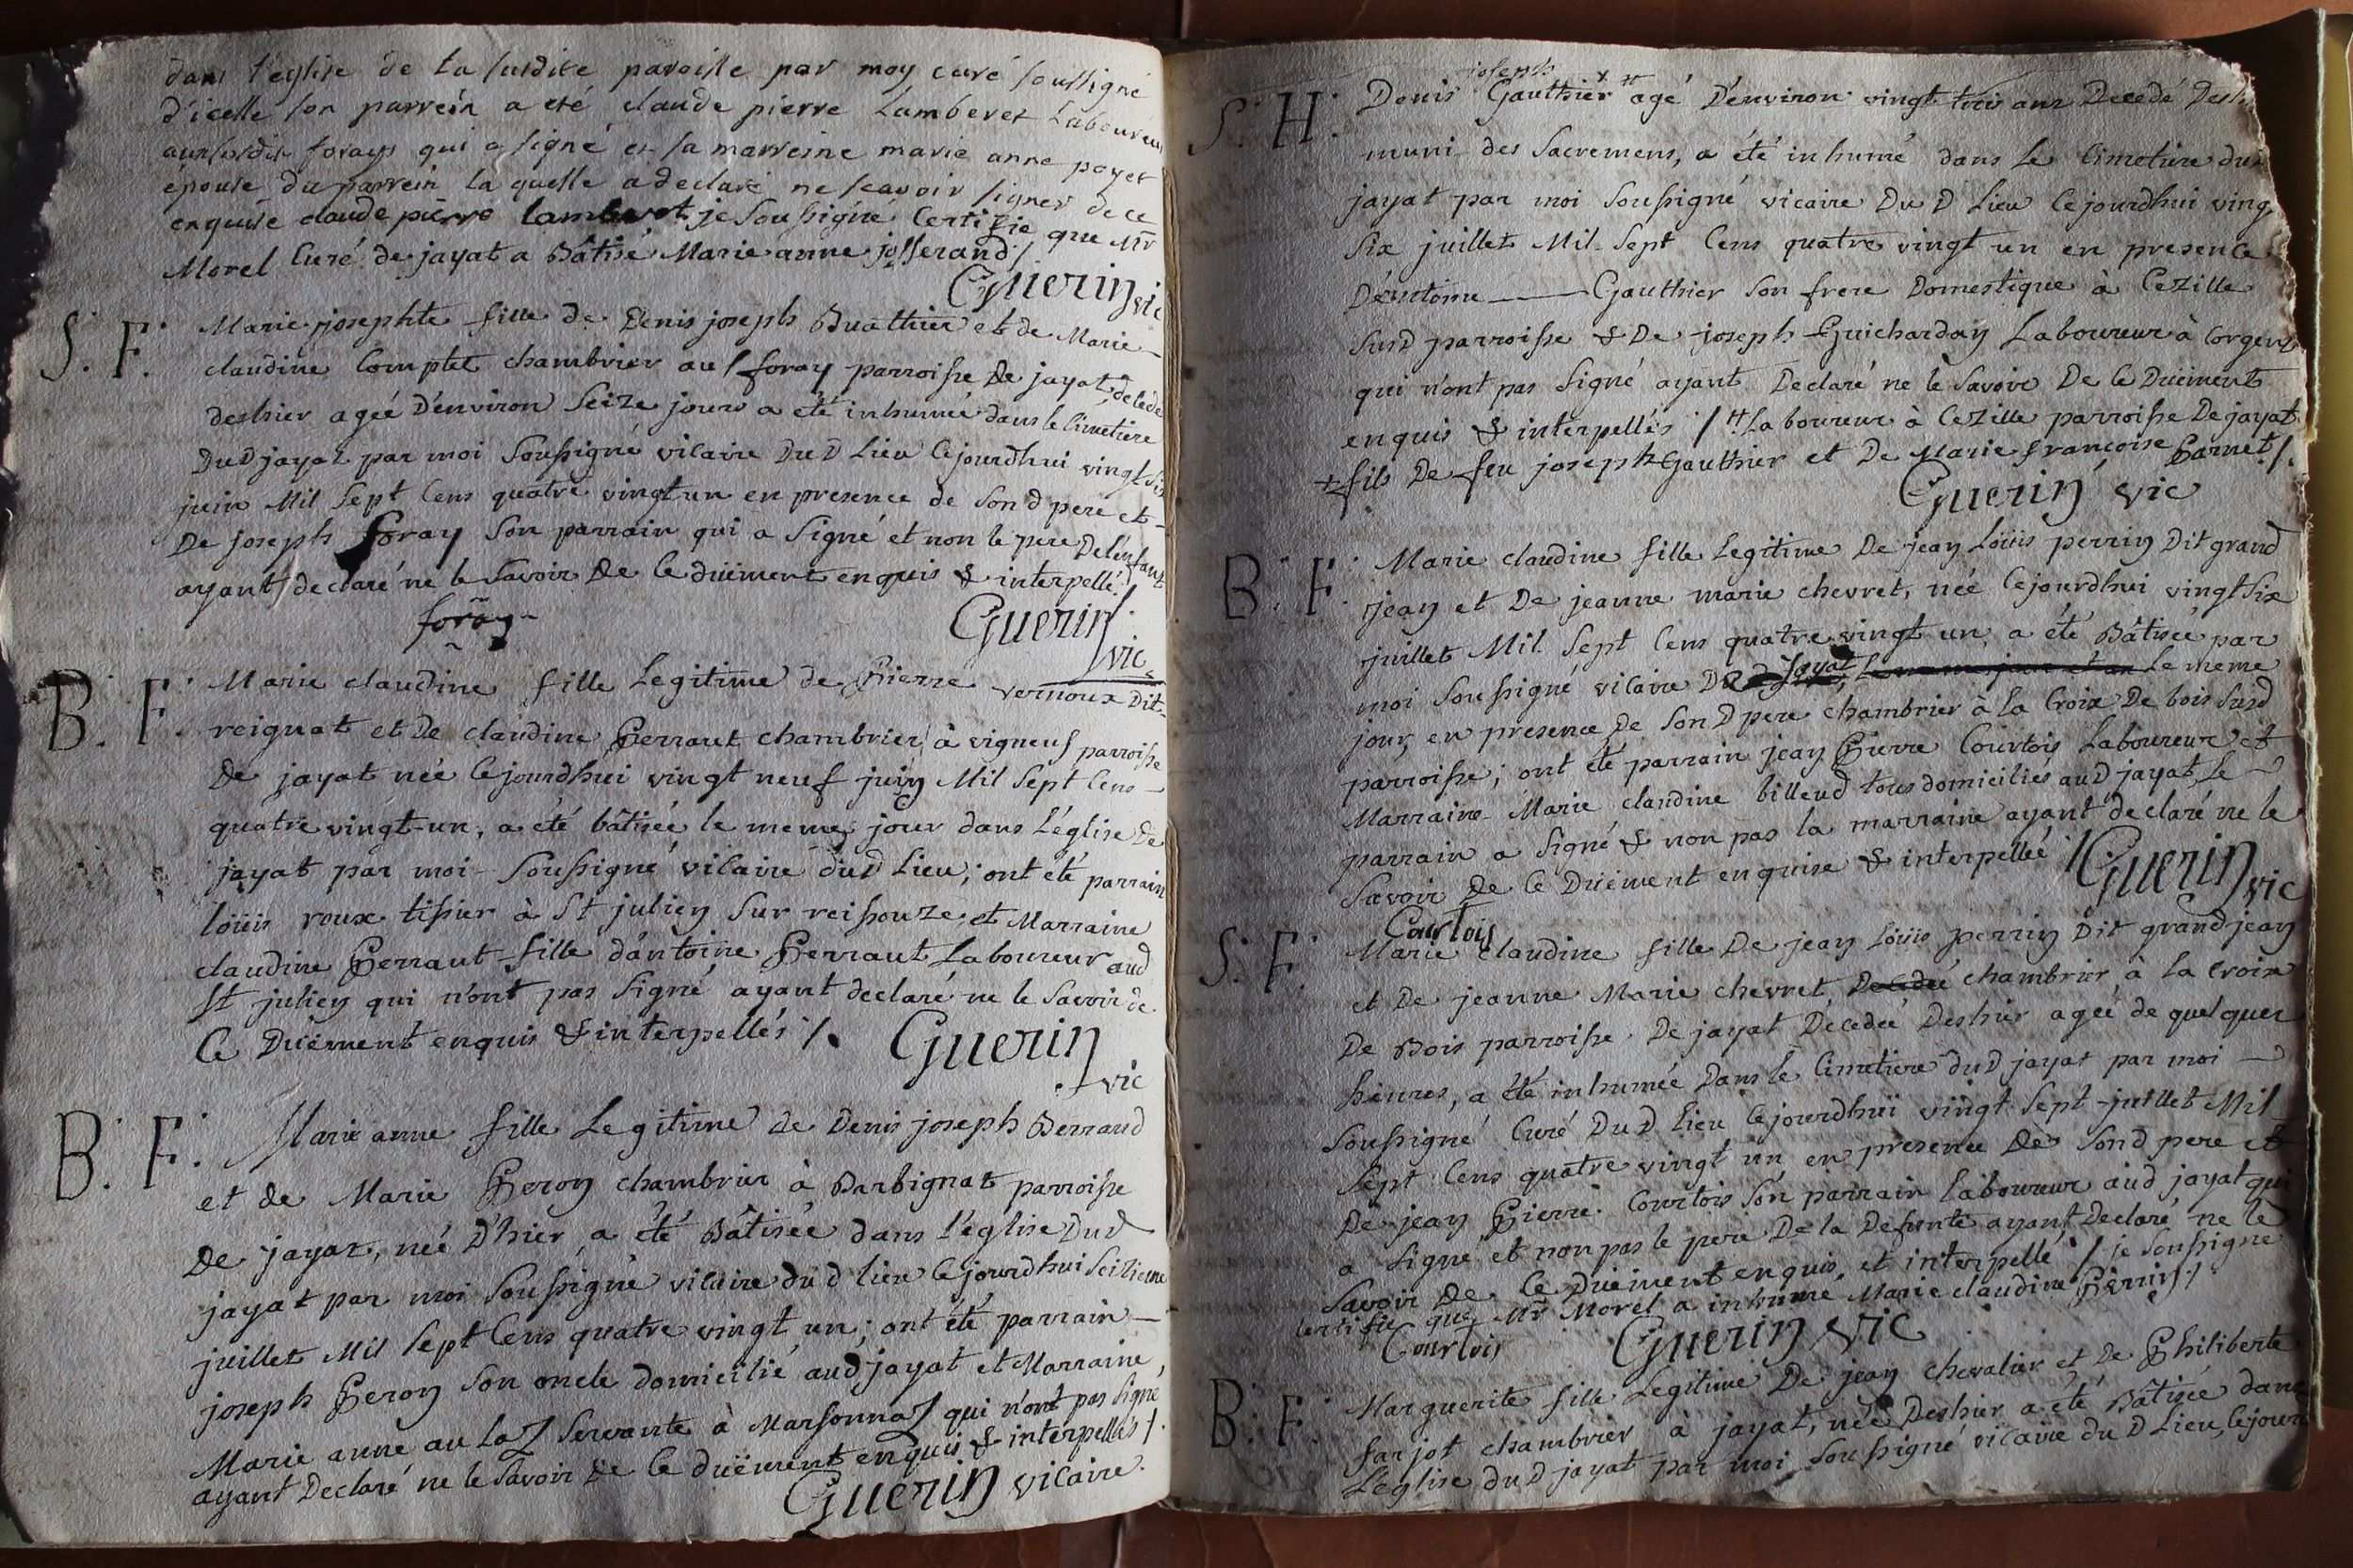 dans l'eglise de la susdite paroisse par moy curé soussigné
d'icelle son parrein a eté claude pierre Lamberet Laboureur
aux susdit forays qui a signé et sa marreine marie anne poyet
épouse du parrein la quelle a declaré ne scavoir signer de ce
enquise claude pierre lamberet je Soussigné Certifie que Mr
Morel Curé de jayat a Bâtisé Marie anne josserand /
Guerin vic
S. F. Marie josephte fille de Denis joseph Buathier et de Marie
claudine Comptet chambrier au foray parroisse De jayat, decedé
deshier ageé D'environ Seize jours a été inhumée dans le Cimetiere
DuD jayat par moi Soussigné vicaire DuD Lieu Cejourdhui vingt Six
juin Mil Sept Cens quatre vingt un en presence de Son D pere et
De joseph foray Son parrain qui a Signé et non le pere De l'enfant
ayant declaré ne le Savoir De Ce duëment enquis & interpellé /.
foray
Guerin
vic
B. F. Marie claudine fille Legitime de Pierre vernoux Dit
reignat et De claudine Perraut chambrier à vigneuf parroisse
De jayat née Cejourdhui vingt neuf juin Mil Sept Cens
quatre vingt-un, a été bâtisée le meme jour dans L'église De
jayat par moi Soussigné vicaire du D Lieu; ont été parrain
Loüis roux tissier à St julien Sur reissouze et Marraine
claudine Perraut fille d'antoine Perraut Laboureur aud
St julien qui n'ont pas Signé ayant declaré ne le Savoir de
Ce Duëment enquis & interpellés /. Guerin
vic
B. F. Marie anne fille Legitime De Denis joseph Berraud
et de Marie Peron chambrier à Barbignat parroisse
De jayat, née D'hier, a été Bâtisée dans l'église Dud
jayat par moi Soussigné vicaire du D lieu Cejourdhui Seizieme
juillet Mil Sept Cens quatre vingt un; ont été parrain
joseph Peron Son oncle domicilié aud jayat et Marraine
Marie anne au Laz Servante à Marsonnaz qui n'ont pas Signé
ayant Declaré ne le Savoir De Ce duëment enquis & interpellés /.
Guerin vicaire.
joseph
S. H. Denis Gauthier + # agé D'environ vingt trois ans Decedé Desh
muni des Sacremens, a été inhumé dans Le Cimetiere dud
jayat par moi Soussigné vicaire Du D Lieu Cejourdhui ving
Six juillet Mil Sept Cens quatre vingt un en presence
D'antoine Gauthier Son frere Domestique à Cezille
SusD parroisse & De joseph Guichardon Laboureur à Corgent
qui n'ont pas Signé ayant Declaré ne le Savoir De Ce Duëment
enquis & interpellés / # Laboureur à Cezille parroisse De jayat
+ fils De feu joseph Gauthier et De Marie françoise Parnet /.
Guerin vic
B. F. Marie claudine fille Legitime De jean Loüis perrin Dit grand
jean et De jeanne marie chevret, née Cejourdhui vingt Six
juillet Mil Sept Cens quatre vingt un a été Bâtisée par
moi Soussigné vicaire DuD Jayat Le meme
jour, en presence De Son D pere chambrier à la Croix De bois Susd
parroisse; ont été parrain jean Pierre Courtois Laboureur et
Marraine Marie claudine billeud tous domiciliés auD jayat, Le
parrain a Signé & non pas la marraine ayant declaré ne le
Savoir De Ce Duëment enquise & interpellée / Guerin vic
Courtois
S. F. Marie claudine fille De jean Loüis perrin Dit grand jean
et De jeanne Marie chevret Decedée chambrier à La Croix
De Bois parroisse De jayat Decedée Deshier ageé de quelques
heures, a été inhumée Dans le Cimetiere du D jayat par moi
Soussigné Curé Du D Lieu Cejourdhui vingt Sept juillet Mil
Sept Cens quatre vingt un en presence De Son D pere et
De jean Pierre Courtois Son parrain Laboureur aud jayat qui
a Signé et non pas le pere De la Defunte ayant Declaré ne le
Savoir De Ce Duëment enquis, et interpellé / je Soussigne
Certifie que Mr Morel a inhumé Marie claudine Perrin /.
Courtois Guerin vic
B. F. Marguerite fille Legitime De jean Chevalier et De Philiberte
farjot chambrier à jayat, née Deshier a été Bâtisée dans
L'église du D jayat par moi Soussigné vicaire du D Lieu, Cejour